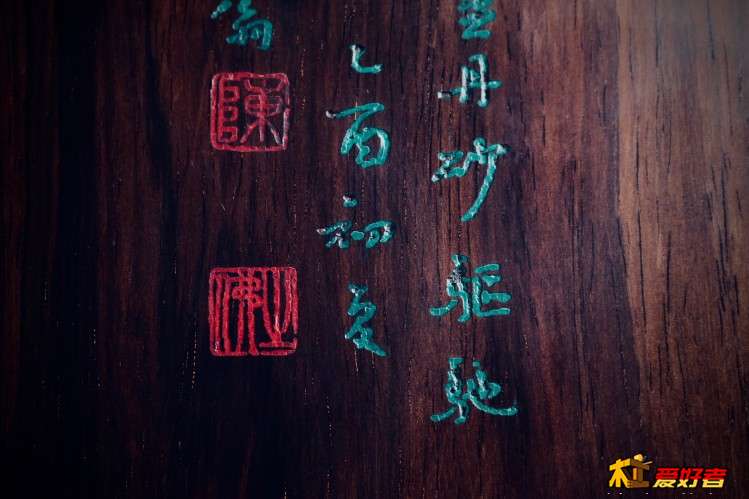 丹砂驅馳
乙酉初夏
陳
木工爱好者